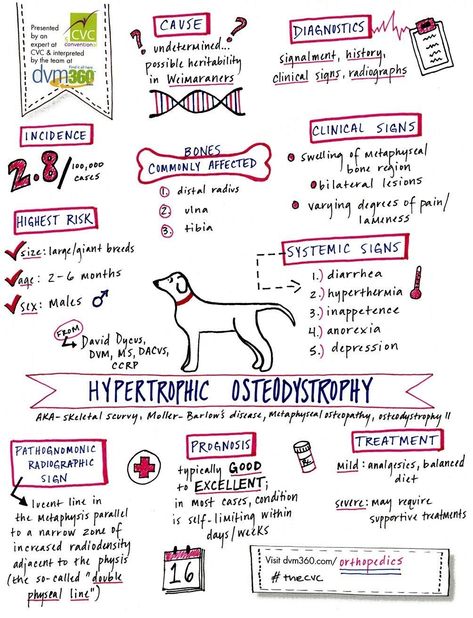 Presented
by an
expert at
CVC & interpreted
by the team at
CVC
convention
dvm360
CAUSE
undetermined...?
possible heritability
in Weimaraners
DIAGNOSTICS
signalment, history,
clinical signs, radiographs
INCIDENCE
2.8/100,000
cases
BONES
COMMONLY AFFECTED
1. distal radius
2. ulna
3. tibia
CLINICAL SIGNS
swelling of metaphyseal
bone region
bilateral lesions
varying degrees of pain/
lameness
HIGHEST RISK
size: large/giant breeds
age: 2-6 months
sex: males ♂
SYSTEMIC SIGNS
1.) diarrhea
2.) hyperthermia
3.) inappetence
4.) anorexia
5.) depression
FROM
David Dycus,
DVM, MS, DACVS,
CCRP
HYPERTROPHIC OSTEODYSTROPHY
AKA- skeletal scurvy, Moller-Barlow's disease, metaphyseal osteopathy, osteodystrophy II
PATHOGNOMONIC
RADIOGRAPHIC
SIGN
lucent line in
the metaphysis parallel
to a narrow zone of
increased radiodensity
adjacent to the physis
(the so-called "double
physeal line")
PROGNOSIS
typically GOOD
to EXCELLENT;
in most cases, condition
is self-limiting within
days/weeks
16
Rx
TREATMENT
mild: analgesics, balanced
diet
severe: may require
supportive treatments
Visit dvm360.com/orthopedics
#thecvc